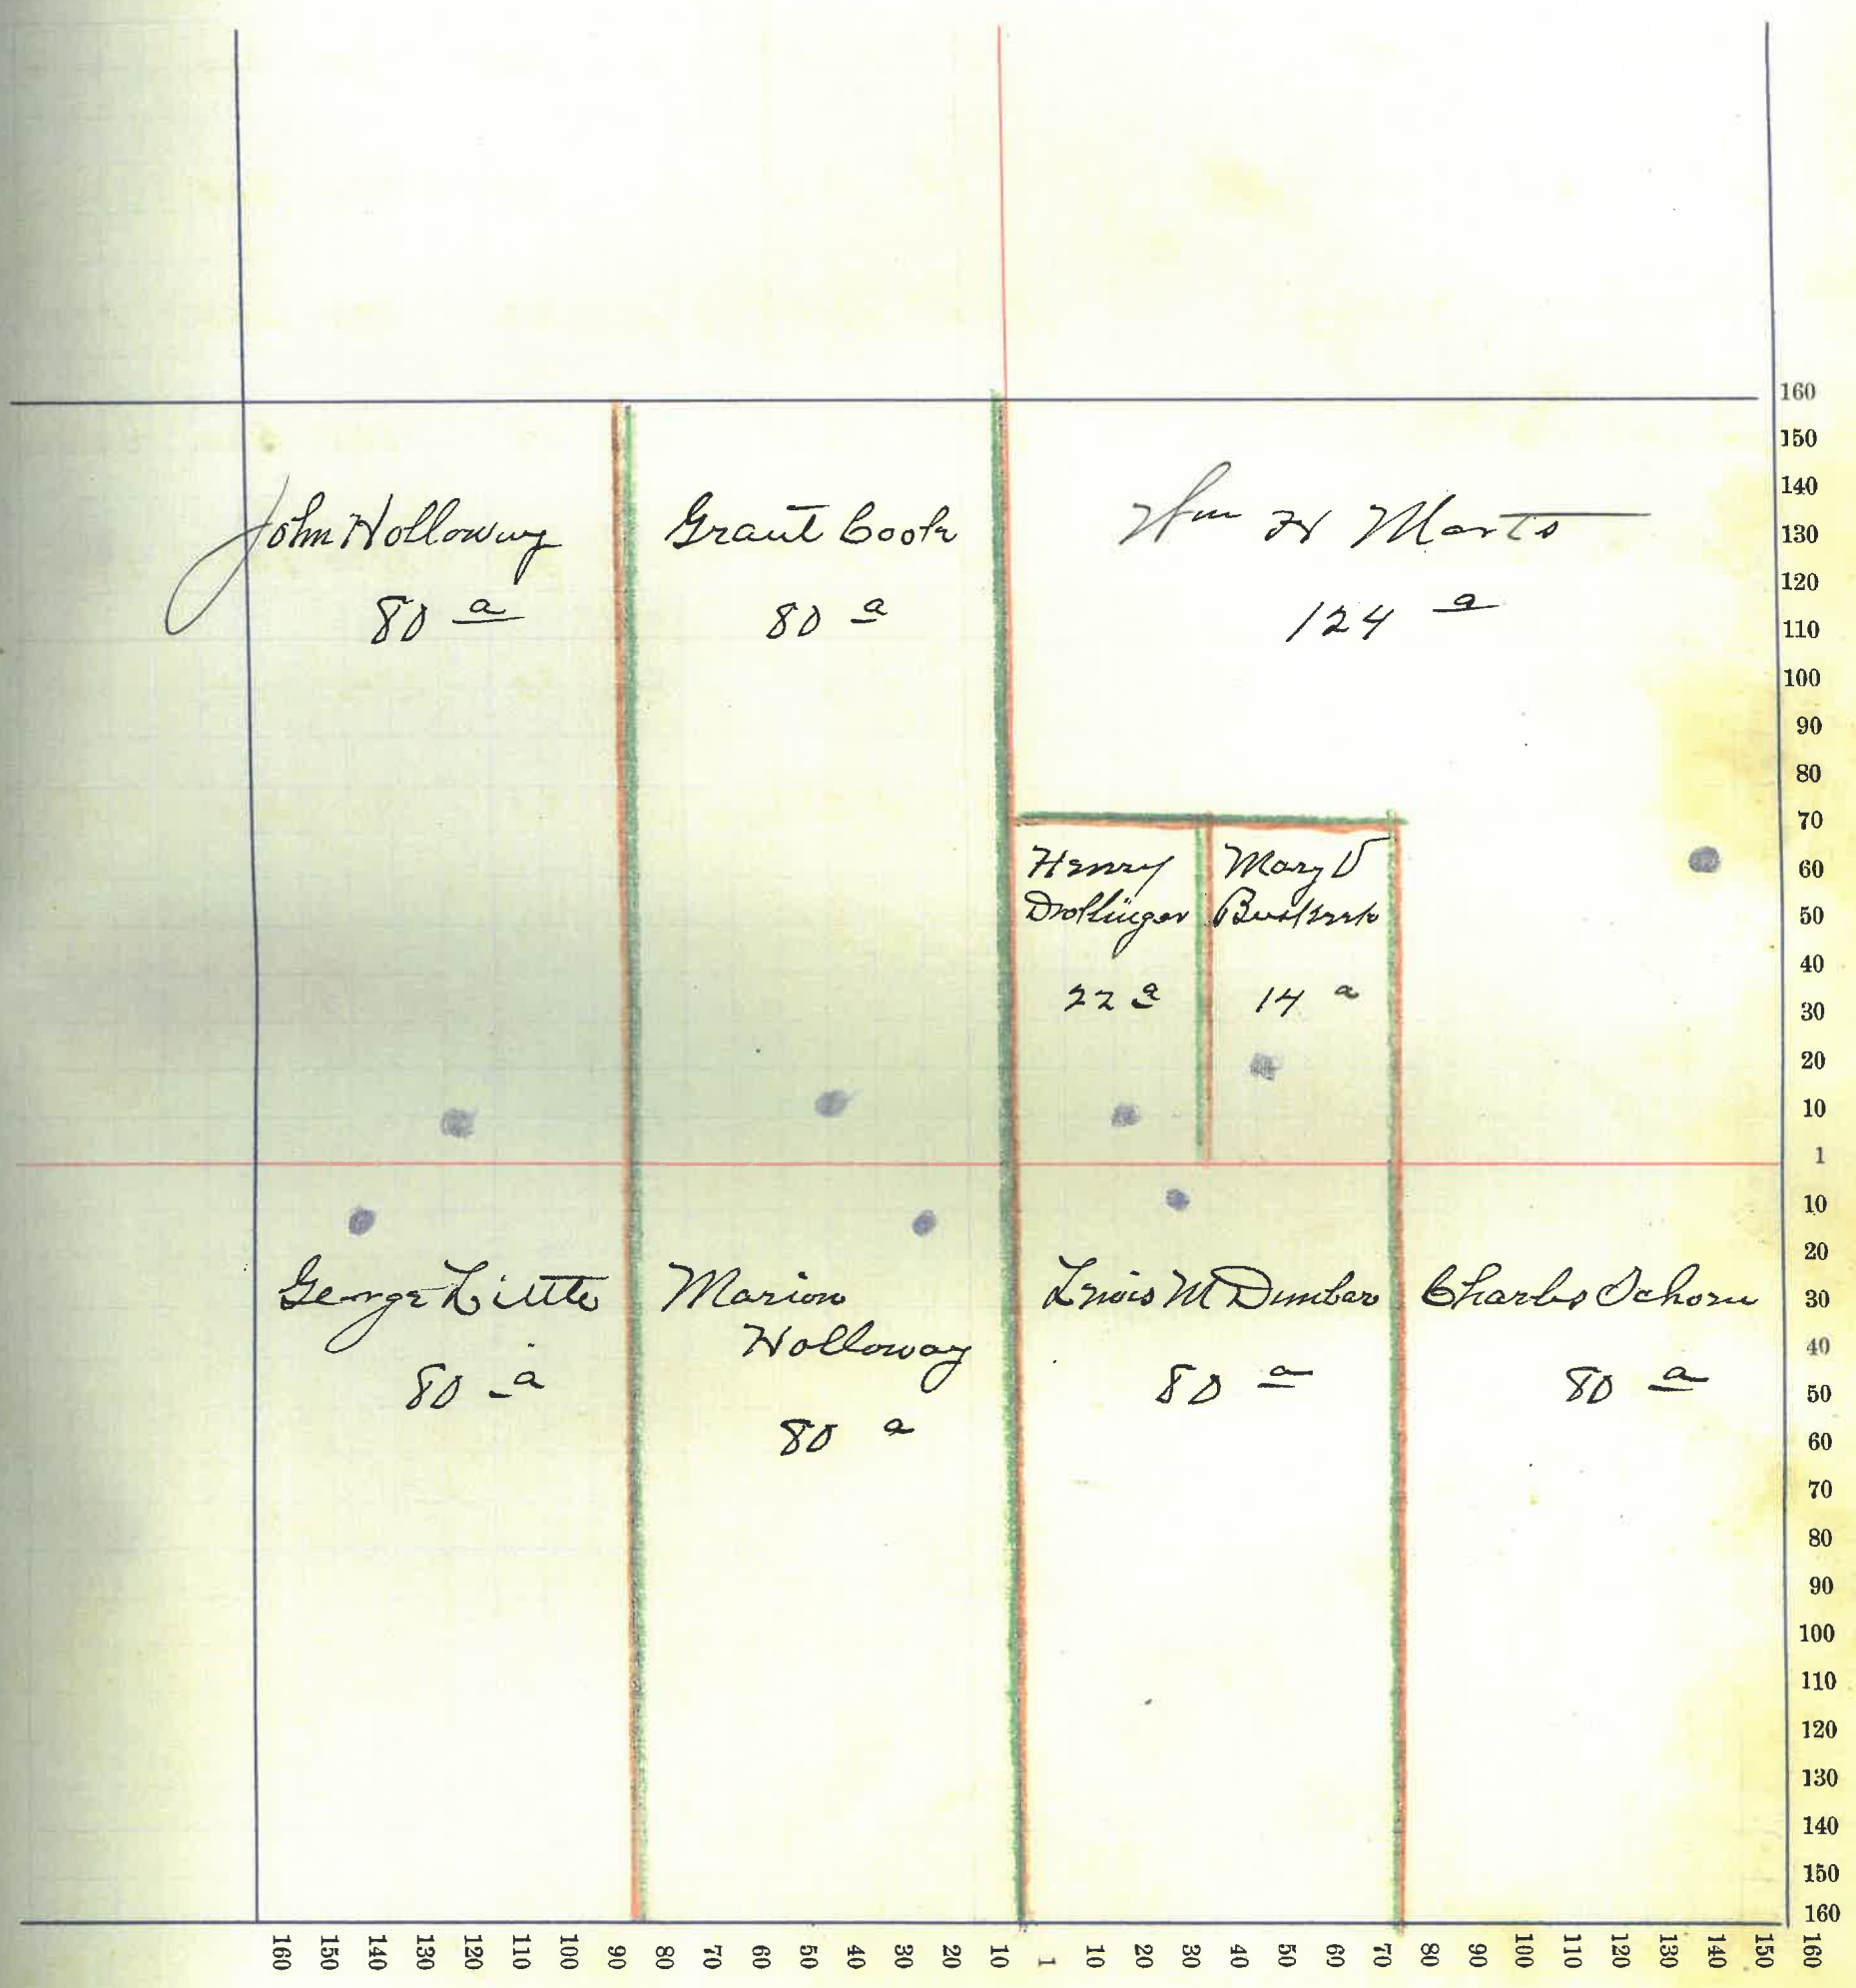 John Holloway
80 a
Grant Cook
80 a
Wm H Marts
124 a
Henry
Drollinger
22 a
Mary V
Buskirk
14 a
George Little
80 a
Marion
Holloway
80 a
Lewis M Dunbar
80 a
Charles Schorn
80 a
160
150
140
130
120
110
100
90
80
70
60
50
40
30
20
10
1
10
20
30
40
50
60
70
80
90
100
110
120
130
140
150
160
160 150 140 130 120 110 100 90 80 70 60 50 40 30 20 10 1 10 20 30 40 50 60 70 80 90 100 110 120 130 140 150 160